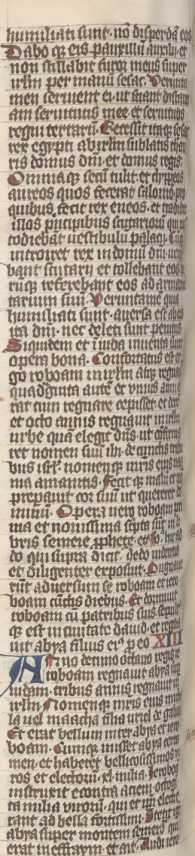 humiliati sunt· nō disperdā eos
Dabo q; eis pauxillū auxilii· et
non stillabit furor meus super
irłm per manū sesac· Verūta
men seruient ei· ut sciant distan
ciam seruitutis mee et seruitutis
regni terrarū· Recessit itaq; sesac
rex egypti ab irłm sublatis thesau
ris domus dñi· et domus regis·
Omniaq; secū tulit· et clypeos
aureos quos fecerat salomō· pro
quibus fecit rex eneos· et tradidit
illos principibus scutariorū qui cus
todiebāt uestibulū palacii· Cūq;
introiret rex in domū dñi· ueni
ebant scutarii et tollebant eos· ite
rūq; referebant eos ad armamē
tarium suū· Verūtamē quia
humiliati sunt· auersa est ab eis
ira dñi· nec deleti sunt penitus
Siquidem et in iuda inuenta sunt
opera bona· Confortatus est er
go roboam in irłm atq; regnauit
quadraginta autē et unius anni
erat cum regnare cepisset· et decē
et octo annis regnauit in irłm
urbe quā elegit dñs· ut confirma
ret nomen suū ibi· de cunctis tribu
bus isrł· nomenq; mr̄is eius naa
ma amanitis· Fecit q; malū et nō
preparauit cor suū ut quereret
dñm· Opera uero roboam pri
ma et nouissima scripta sūt in li
bris semeie ꝓphete· et
do qui supra dicit
et diligenter exposita· Pugnaue
runt aduersum se roboam et iero
boam cūctis diebus· Et dormiuit
roboam cū patribus suis sepultus
q; est in ciuitate dauid· et regna
uit abya filius ei' ꝓ eo XIII
Anno octauo decimo regis ie
roboam regnauit abya sup
iudam· tribus annis regnauit in
irłm· Nomenq; mr̄is eius micha
ia
Et erat bellum inter abya et iero
boam· Cumq; inisset abya certa
men· et haberet bellicosissimos ui
ros et electorū· milia· Ieroboā
instruxit econtra aciem· octingen
ta milia virorū· qui et ip̄i electi
erant ad bella fortissimi· Stetit g
abya super montem semeron qui
erat in effraym· et ait· Audi iero